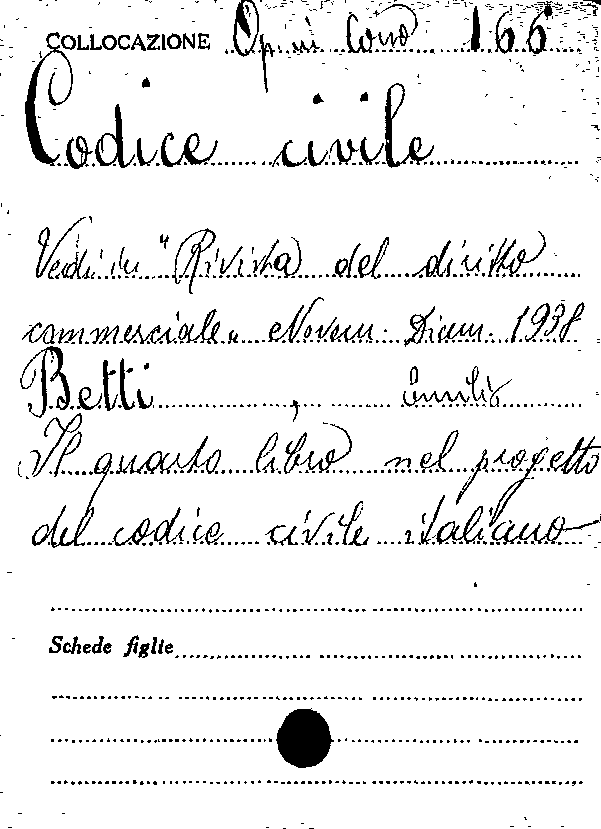 COLLOCAZIONE Op. in Cons 166
Codice civile
Vedi in "Rivista del diritto
commerciale„ Novem. Dicem. 1938
Betti, Emilio
Il quarto libro nel progetto
del codice civile italiano
Schede figlie